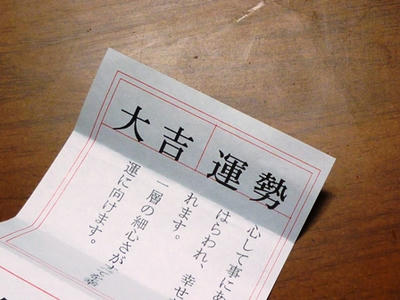 運勢
大吉
心して事にあ
はらわれ、幸せ
れます。
一層の細心さが
運に向けます。